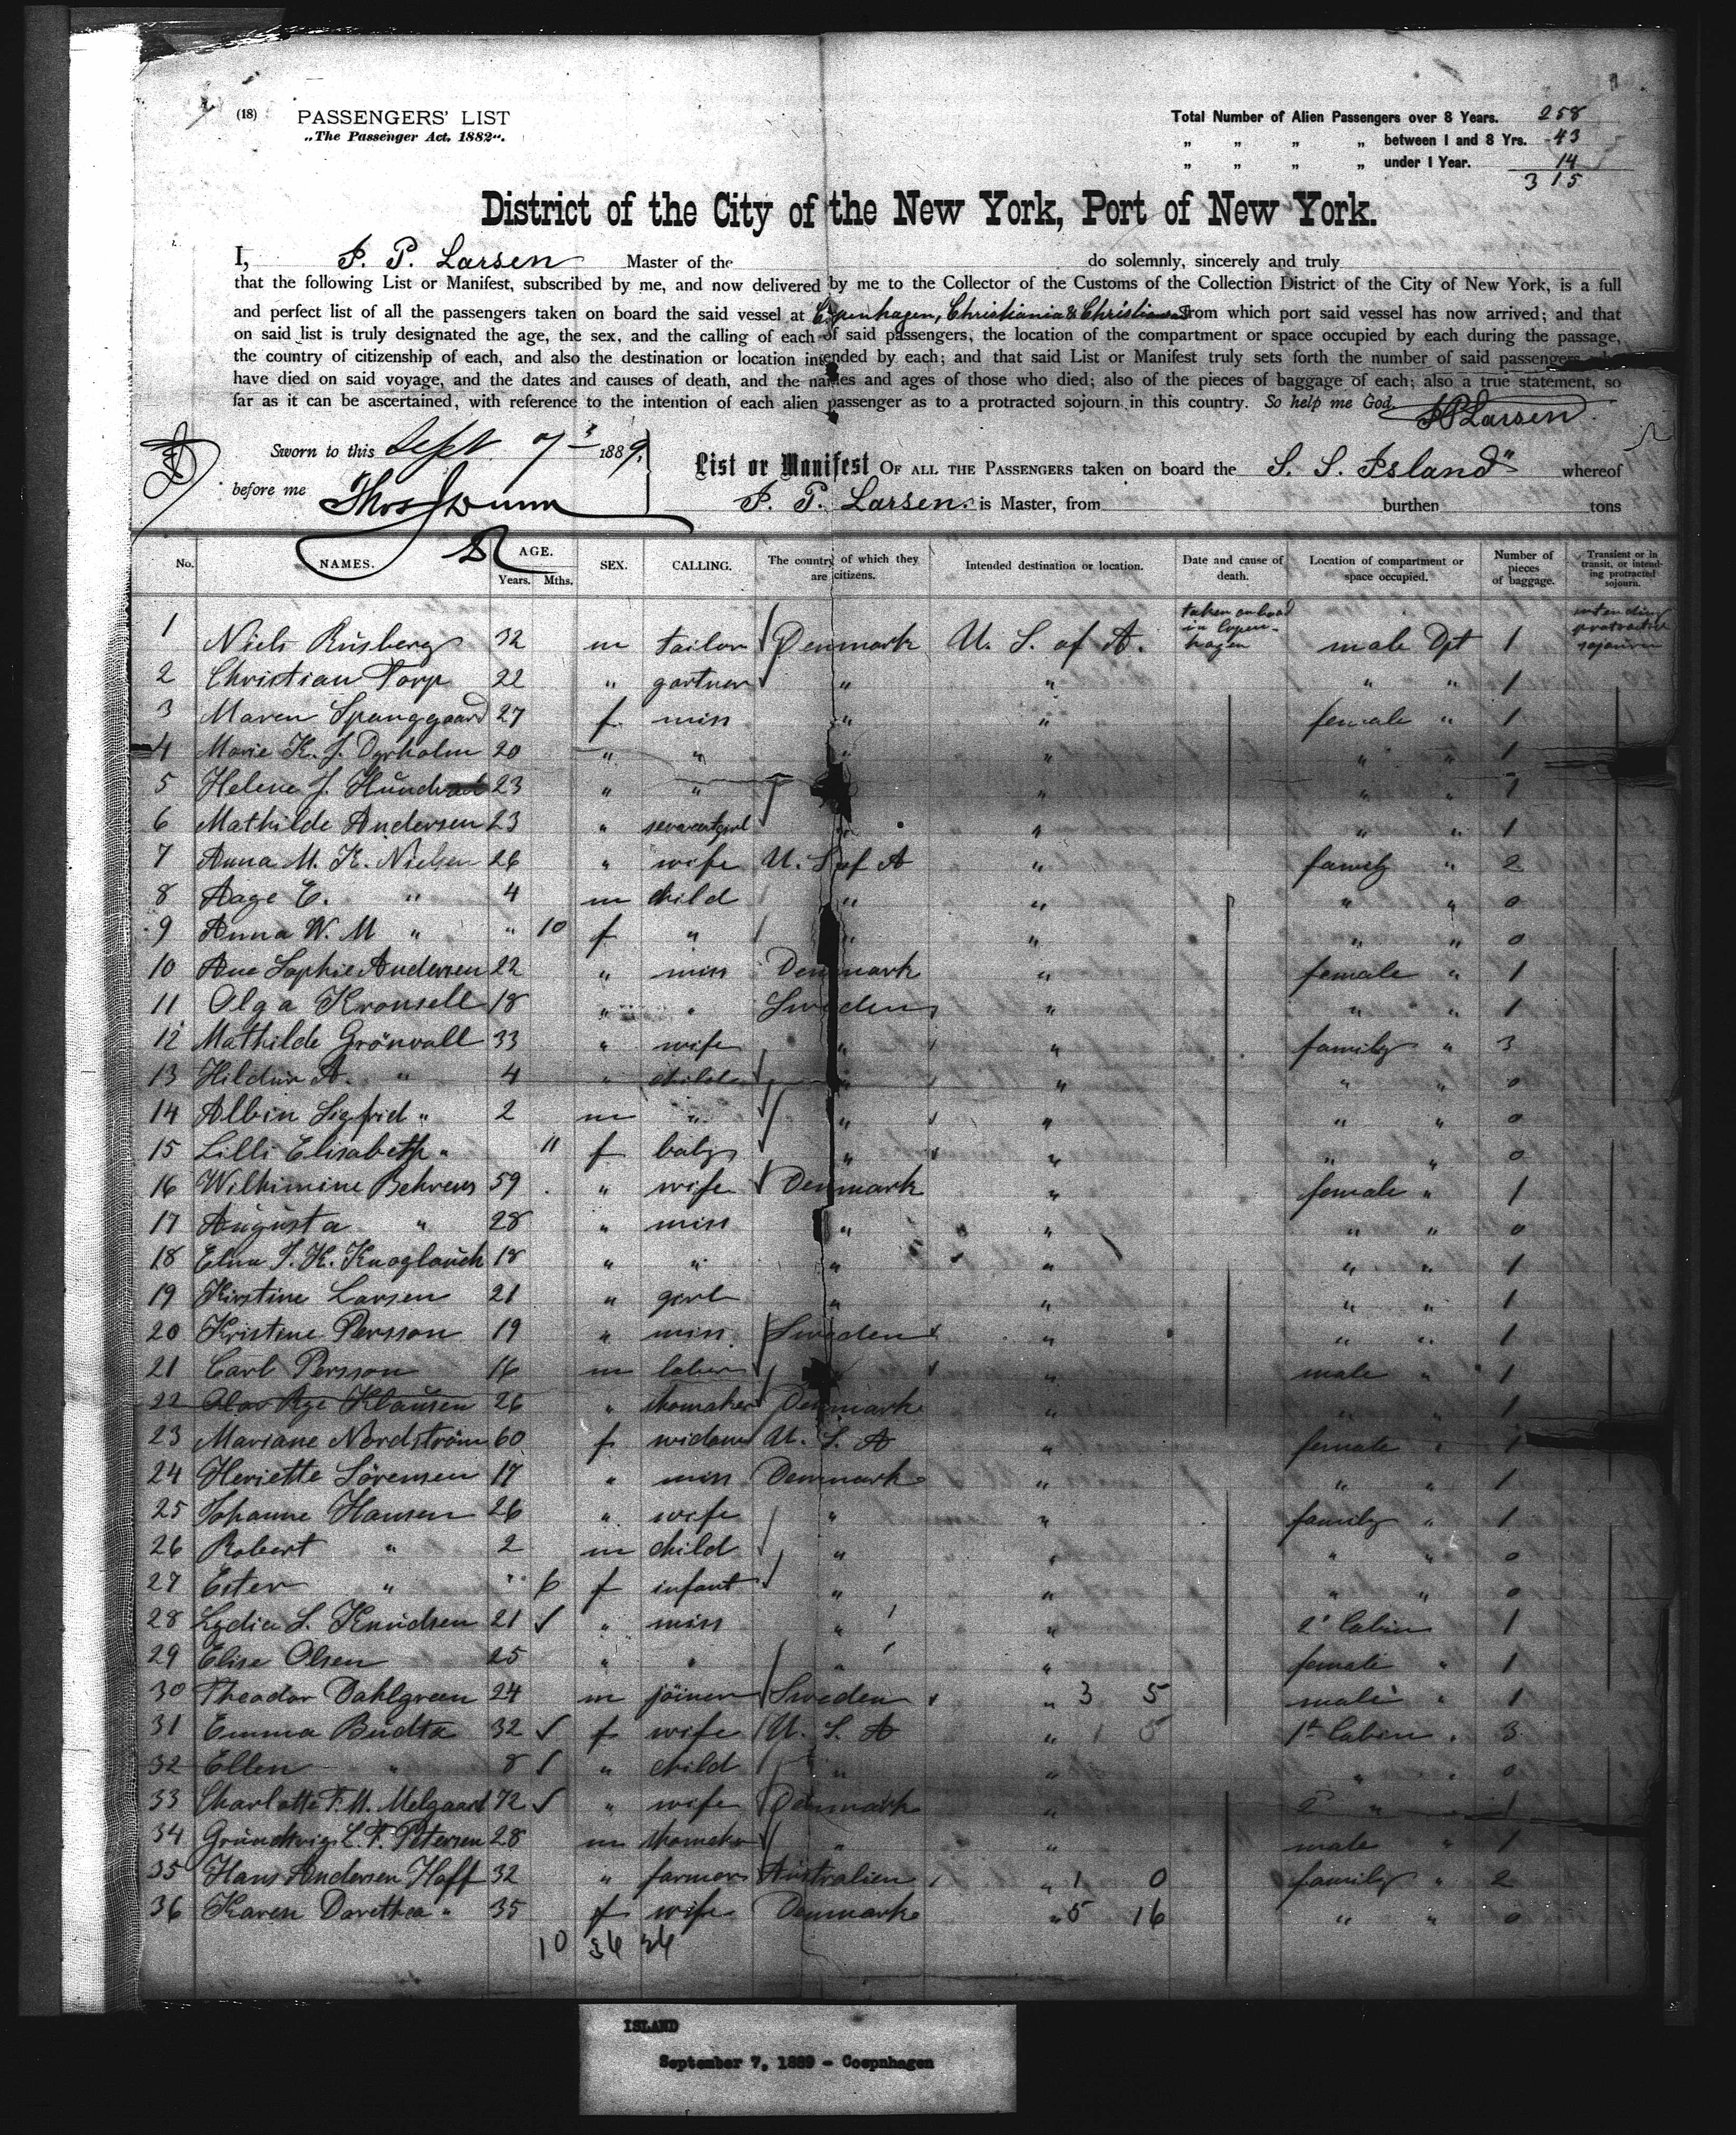 (18) PASSENGERS' LIST
„The Passenger Act, 1882".
Total Number of Alien Passengers over 8 Years. 258
„ „ „ „ between 1 and 8 Yrs. 43
„ „ „ „ under 1 Year. 14
315
District of the City of the New York, Port of New York.
I, J. P. Larsen Master of the do solemnly, sincerely and truly
that the following List or Manifest, subscribed by me, and now delivered by me to the Collector of the Customs of the Collection District of the City of New York, is a full
and perfect list of all the passengers taken on board the said vessel at Copenhagen, Christiania & Christiansand from which port said vessel has now arrived; and that
on said list is truly designated the age, the sex, and the calling of each of said passengers, the location of the compartment or space occupied by each during the passage,
the country of citizenship of each, and also the destination or location intended by each; and that said List or Manifest truly sets forth the number of said passengers who
have died on said voyage, and the dates and causes of death, and the names and ages of those who died; also of the pieces of baggage of each; also a true statement, so
far as it can be ascertained, with reference to the intention of each alien passenger as to a protracted sojourn in this country. So help me God.
JPLarsen
Sworn to this Sept 7 1889.
before me Thos Dunn
List or Manifest OF ALL THE PASSENGERS taken on board the S. S. Island" whereof
J. P. Larsen. is Master, from burthen tons
No. NAMES. AGE. Years. Mths. SEX. CALLING. The country of which they are citizens. Intended destination or location. Date and cause of death. Location of compartment or space occupied. Number of pieces of baggage. Transient or in transit, or intending protracted sojourn.
1 Niels Rüsberg 32 m tailor Denmark U. S. of A. taken onboard in Copenhagen male Dpt 1 intending protracted sojourn
2 Christian Torp 22 " gartner " " " " 1
3 Maren Spanggaard 27 f miss " " female " 1
4 Marie K. J. Dyrholm 20 " " " " " " 1
5 Helene J. 23 " " " " " 1
6 Mathilde Andersen 23 " servantgirl " " " " 1
7 Anna M. K. Nielsen 26 " wife U. S. of A " family " 2
8 Aage C. " 4 m child " " " " 0
9 Anna W. M " " 10 f " " " " " 0
10 Ane Sophie Andersen 22 " miss Denmark " female " 1
11 Olga Kronsell 18 " " Sweden " " " 1
12 Mathilde Grönvall 33 " wife " " family " 3
13 Hildur A. " 4 " child " " " " 0
14 Albin Sigfrid " 2 m " " " " " 0
15 Lilli Elisabeth " 11 f baby " " " " 0
16 Wilhimine Behrens 59 " wife Denmark " female " 1
17 Augusta " 28 " miss " " " " 0
18 Elna J. K. Knoglauch 18 " " " " " " 1
19 Kirstine Larsen 21 " girl " " " " 1
20 Kristine Persson 19 " miss Sweden " " " 1
21 Carl Persson 16 m labor " " male " 1
22 Klausen 26 " shomaker Denmark " " " 1
23 Mariane Nordström 60 f widow U. S. A " female " 1
24 Heriette Sörensen 17 " miss Denmark " " " 1
25 Johanne Hansen 26 " wife " " family " 1
26 Robert " 2 m child " " " " 0
27 Ester " " 6 f infant " " " " 0
28 Lydia S. Knudsen 21 " miss " " 2' Cabin 1
29 Elise Olsen 25 " " " " female " 1
30 Theodor Dahlgreen 24 m joiner Sweden " 3 5 male " 1
31 Emma Budtz 32 f wife U. S. A " 1 5 1st Cabin " 3
32 Ellen " 8 " child " " " " 0
33 Charlotte F. M. Melgaard 72 " wife Denmark " 2' " 1
34 Grundtvig L. P. Petersen 28 m shomaker " " male " 1
35 Hans Andersen Hoff 32 " farmer Australien " 1 0 family " 2
36 Karen Dorethea " 35 f wife Denmark " 5 16 " " 0
10 36 26
ISLAND
September 7, 1889 - Coepnhagen